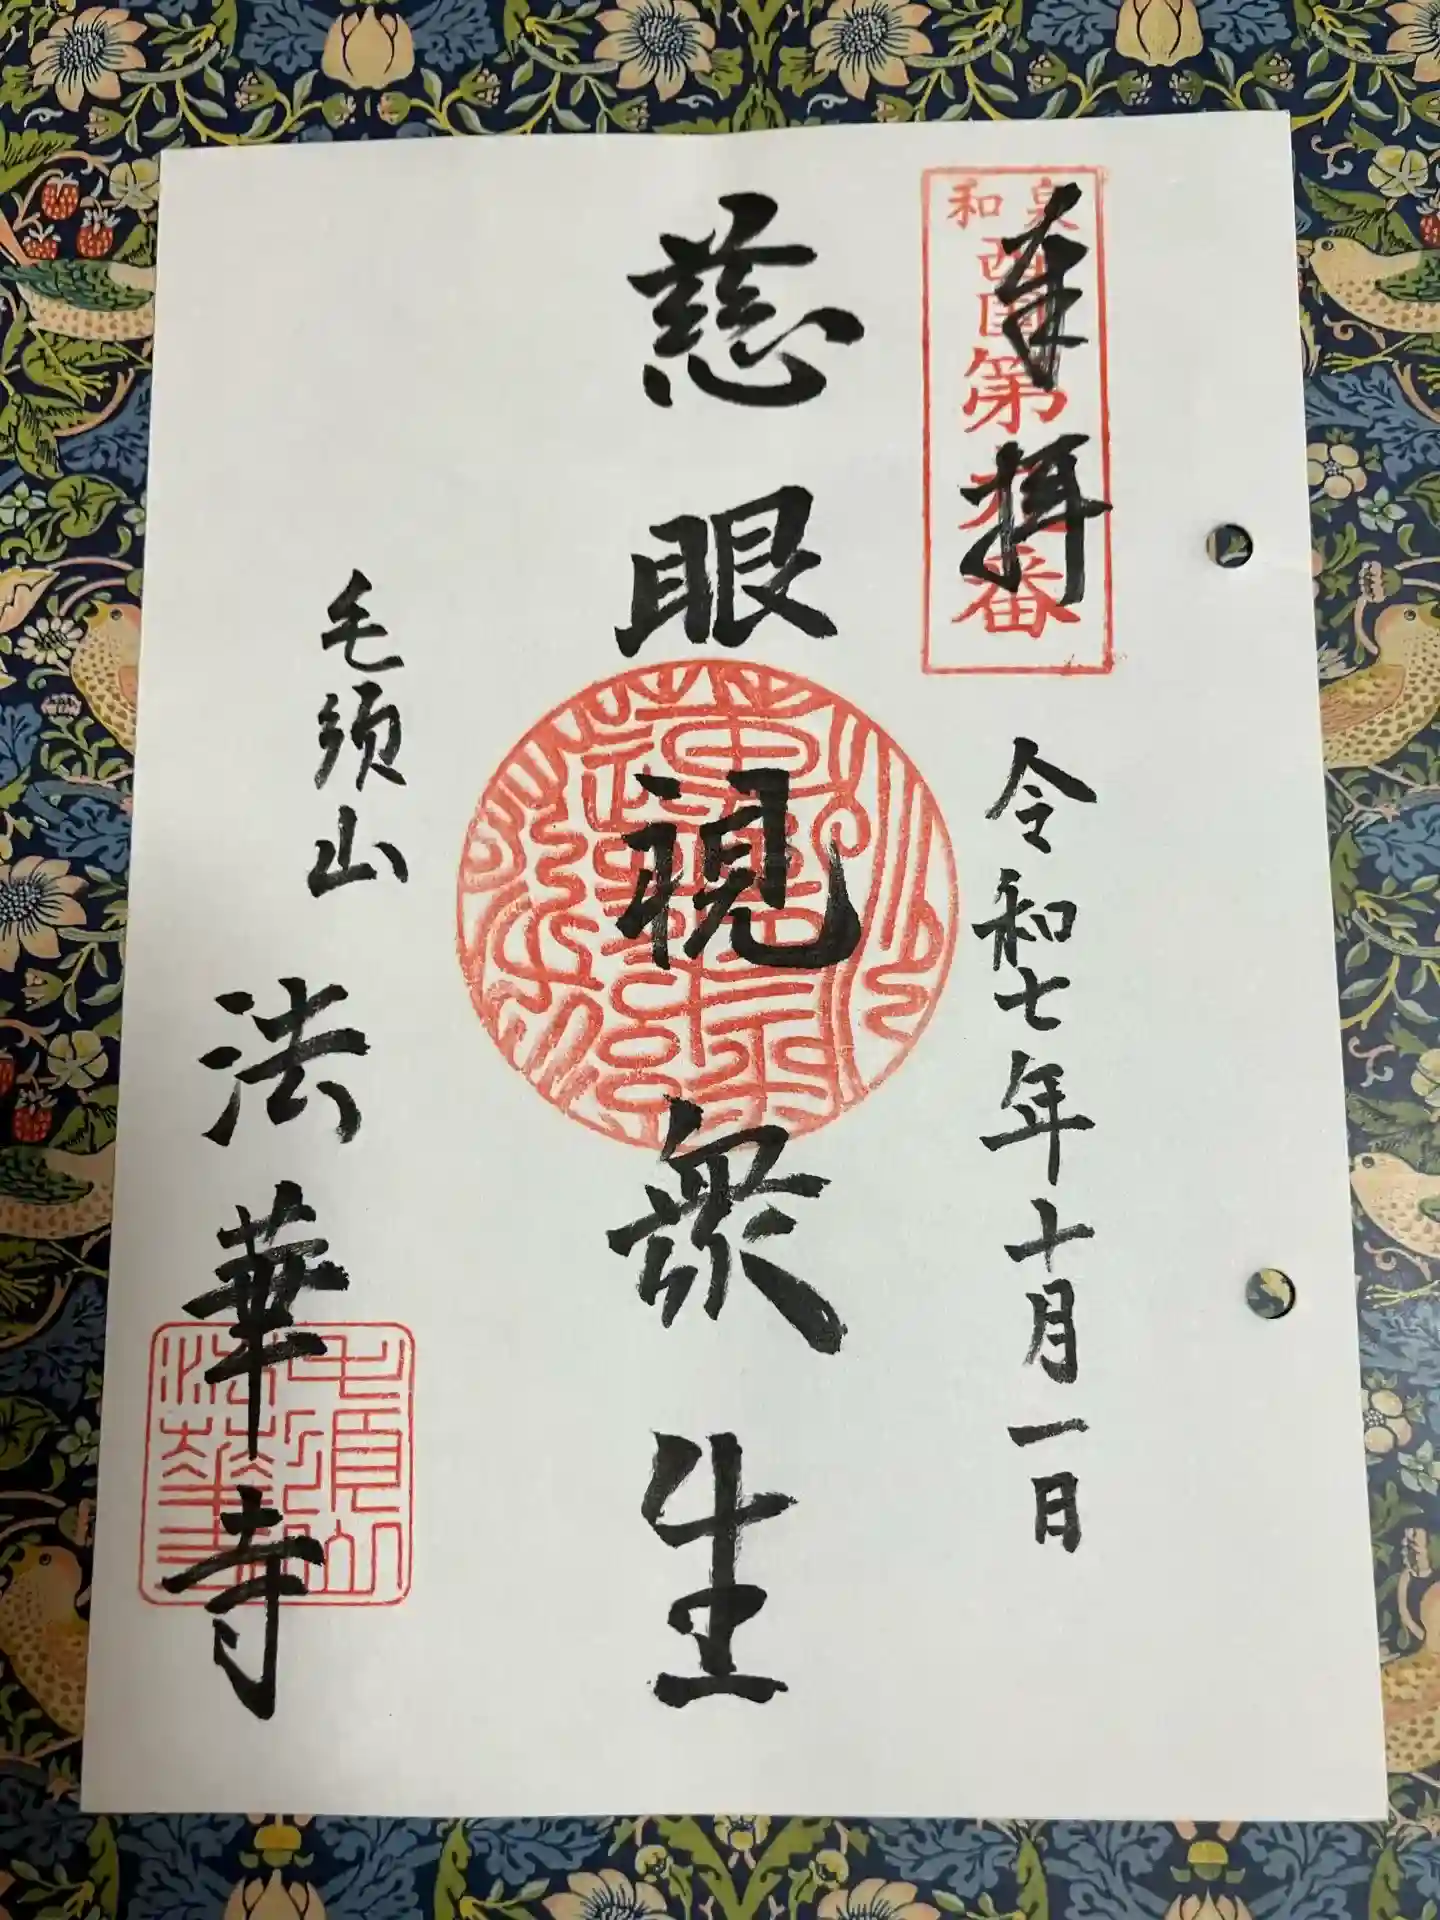 奉拝
和泉
西国第
番
令和七年十月一日
慈眼視衆生
毛須山
法華寺
毛須山
法華寺